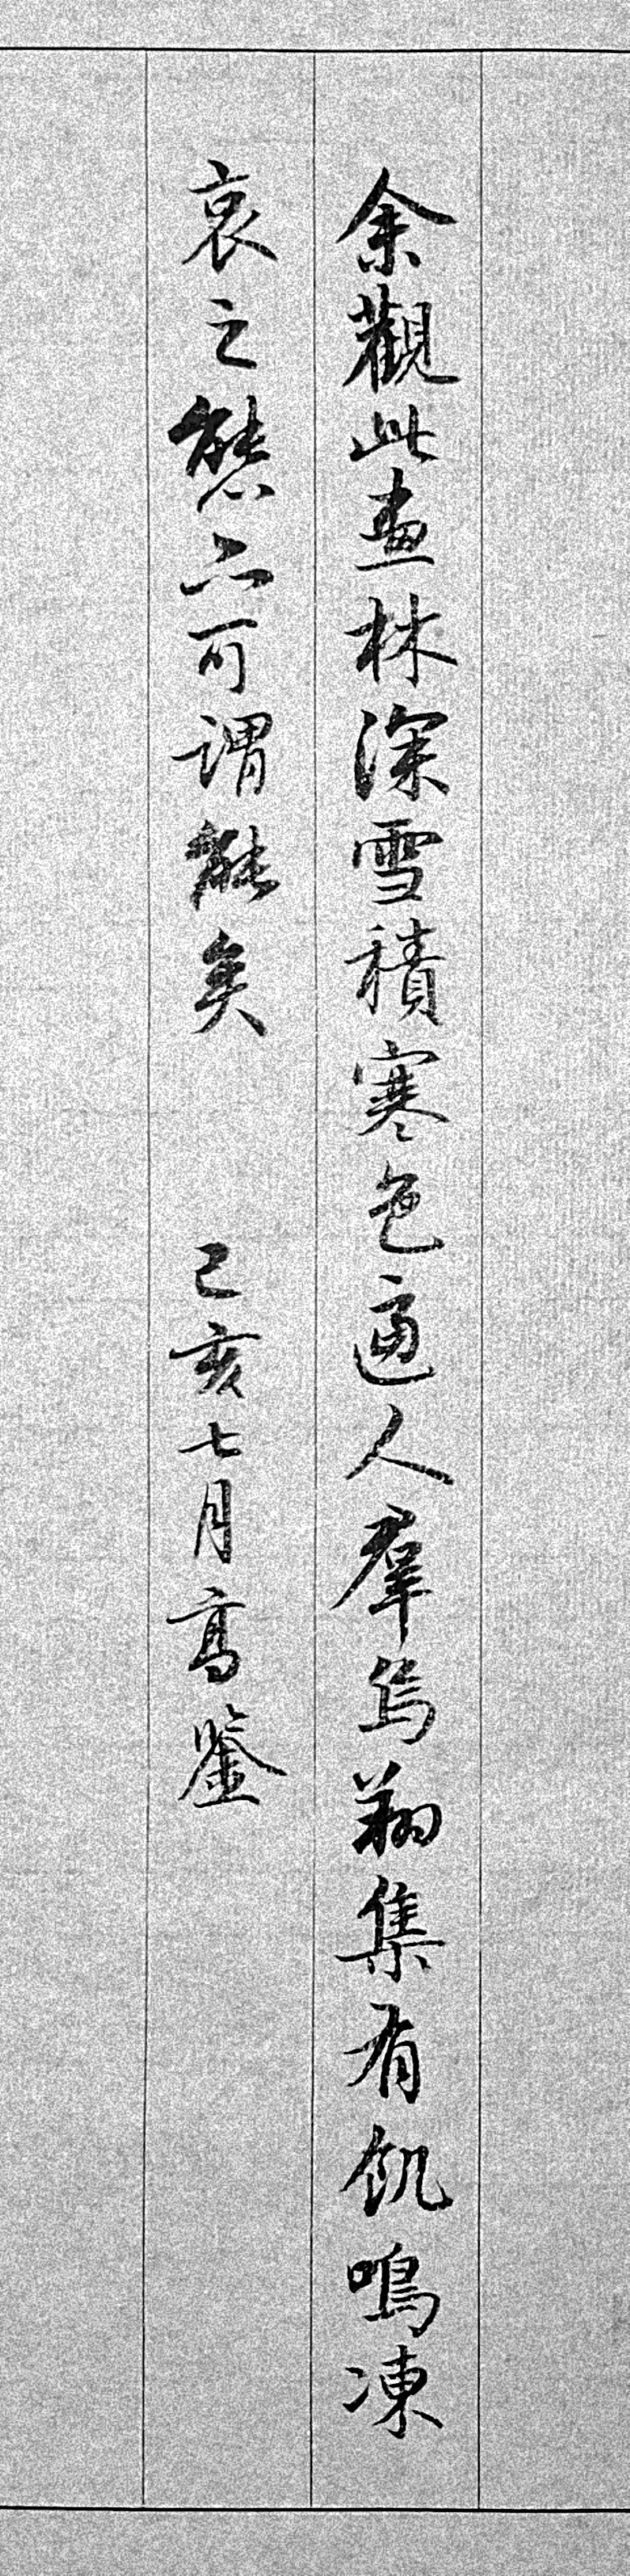 余觀此畫林深雪積寒色逼人羣烏翔集有飢鳴凍
哀之態亦可謂能矣 己亥七月高鑒